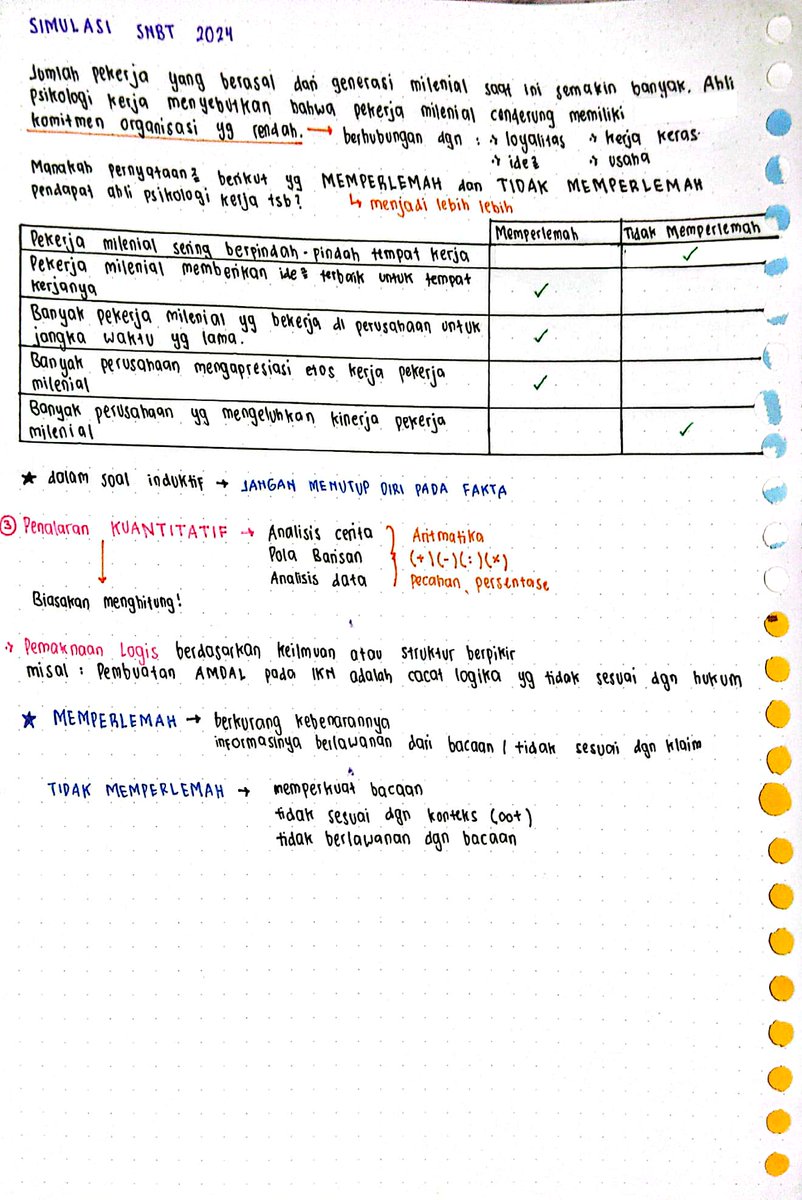 SIMULASI SNBT 2024
Jumlah pekerja yang berasal dari generasi milenial saat ini semakin banyak. Ahli
psikologi kerja menyebutkan bahwa pekerja milenial cenderung memiliki
komitmen organisasi yg rendah. → berhubungan dgn : ∴ loyalitas ∴ kerja keras
∴ ide² ∴ usaha
Manakah pernyataan² berikut yg MEMPERLEMAH dan TIDAK MEMPERLEMAH
pendapat ahli psikologi kerja tsb? ↳ menjadi lebih lebih
Memperlemah Tidak Memperlemah
Pekerja milenial sering berpindah-pindah tempat kerja ✓
Pekerja milenial memberikan ide² terbaik untuk tempat
kerjanya ✓
Banyak pekerja milenial yg bekerja di perusahaan untuk
jangka waktu yg lama. ✓
Banyak perusahaan mengapresiasi etos kerja pekerja
milenial ✓
Banyak perusahaan yg mengeluhkan kinerja pekerja
milenial ✓
★ dalam soal induktif → JANGAN MENUTUP DIRI PADA FAKTA
③ Penalaran KUANTITATIF → Analisis cerita Aritmatika
Pola Barisan (+)(-)(:)(×)
Analisis data pecahan, persentase
Biasakan menghitung!
∴ Pemaknaan Logis berdasarkan keilmuan atau struktur berpikir
misal : Pembuatan AMDAL pada IKN adalah cacat logika yg tidak sesuai dgn hukum
★ MEMPERLEMAH → berkurang kebenarannya
informasinya berlawanan dari bacaan / tidak sesuai dgn klaim
TIDAK MEMPERLEMAH → memperkuat bacaan
tidak sesuai dgn konteks (oot)
tidak berlawanan dgn bacaan